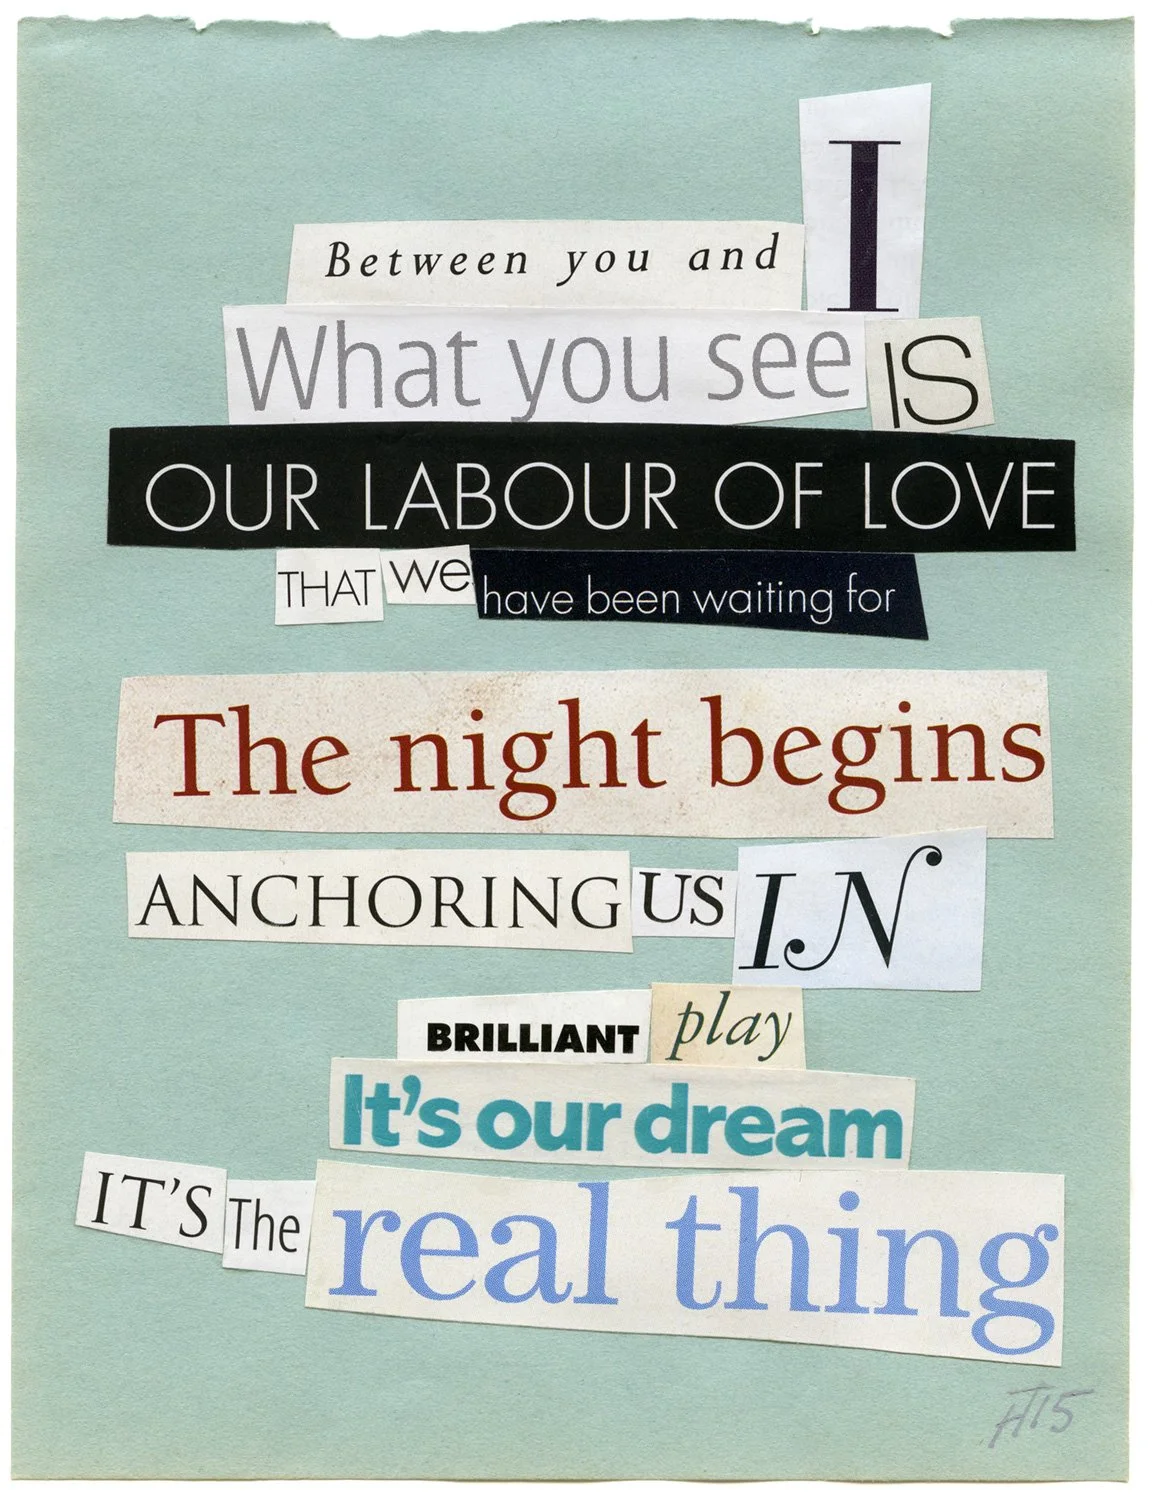 Between you and I
What you see IS
OUR LABOUR OF LOVE
THAT we have been waiting for
The night begins
ANCHORING US IN
BRILLIANT play
It's our dream
IT'S The real thing